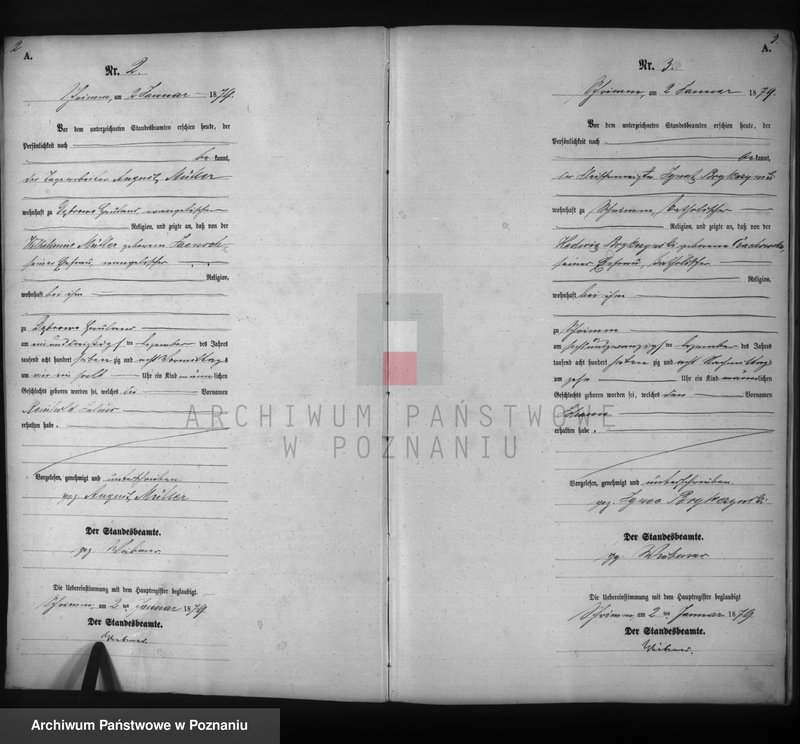 2
A.
Nr. 2.
Schrimm, am 2 Januar 1879.
Vor dem unterzeichneten Standesbeamten erschien heute, der
Persönlichkeit nach
be kannt,
der Tagearbeiter August Müller
wohnhaft zu Dąbrowo Hauland evangelischer
Religion, und zeigte an, daß von der
Wilhelmine Müller geborenen
seiner Ehefrau, evangelischer
Religion,
wohnhaft bei ihm
zu Dąbrowo Hauland
am neunundzwanzigsten Dezember des Jahres
tausend acht hundert sieben zig und acht Vormittags
um Uhr ein Kind männlichen
Geschlechts geboren worden sei, welches die Vornamen
Reinhold Julius
erhalten habe.
Vorgelesen, genehmigt und unterschrieben
gez. August Müller
Der Standesbeamte.
gez.
Die Uebereinstimmung mit dem Hauptregister beglaubigt
Schrimm, am 2 ten Januar 1879.
Der Standesbeamte.
3.
A.
Nr. 3.
Schrimm, am 2 Januar 1879.
Vor dem unterzeichneten Standesbeamten erschien heute, der
Persönlichkeit nach
be kannt,
der Ignatz
wohnhaft zu Schrimm, katholischer
Religion, und zeigte an, daß von der
Hedwig geborene
seiner Ehefrau, katholischer
Religion,
wohnhaft bei ihm
zu Schrimm
am sechsundzwanzigsten Dezember des Jahres
tausend acht hundert sieben zig und acht Nachmittags
um zehn Uhr ein Kind männlichen
Geschlechts geboren worden sei, welches den Vornamen
Johann
erhalten habe.
Vorgelesen, genehmigt und unterschrieben
gez. Ignac
Der Standesbeamte.
gez.
Die Uebereinstimmung mit dem Hauptregister beglaubigt
Schrimm, am 2 ten Januar 1879.
Der Standesbeamte.
ARCHIWUM PAŃSTWOWE
W POZNANIU
Archiwum Państwowe w Poznaniu